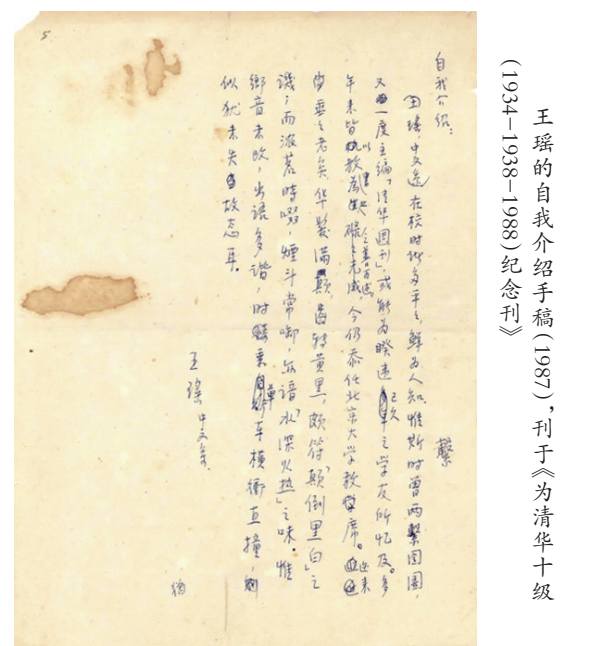 王瑶的自我介绍手稿(1987),刊于《为清华十级
(1934-1938-1988)纪念刊》
5
自我介绍:
王瑶,中文系,在校时诸多平平,鲜为人知,惟斯时曾两繫囹圄,
繫
又一度主编「清华週刊」,或能为暌违已久之学友所忆及。多
年来皆以教书为业,碌碌无成,今仍忝任北京大学教席。近来
垂垂老矣,华髮满颠,齿转黄黑,颇符"颠倒黑白"之
讥;而浓茗时啜,煙斗常啣,亦谙"水深火热"之味。惟
鄉音未改,出语多谐,时乘单车横衝直撞,
似犹未失故态耳。
王瑶 中文系